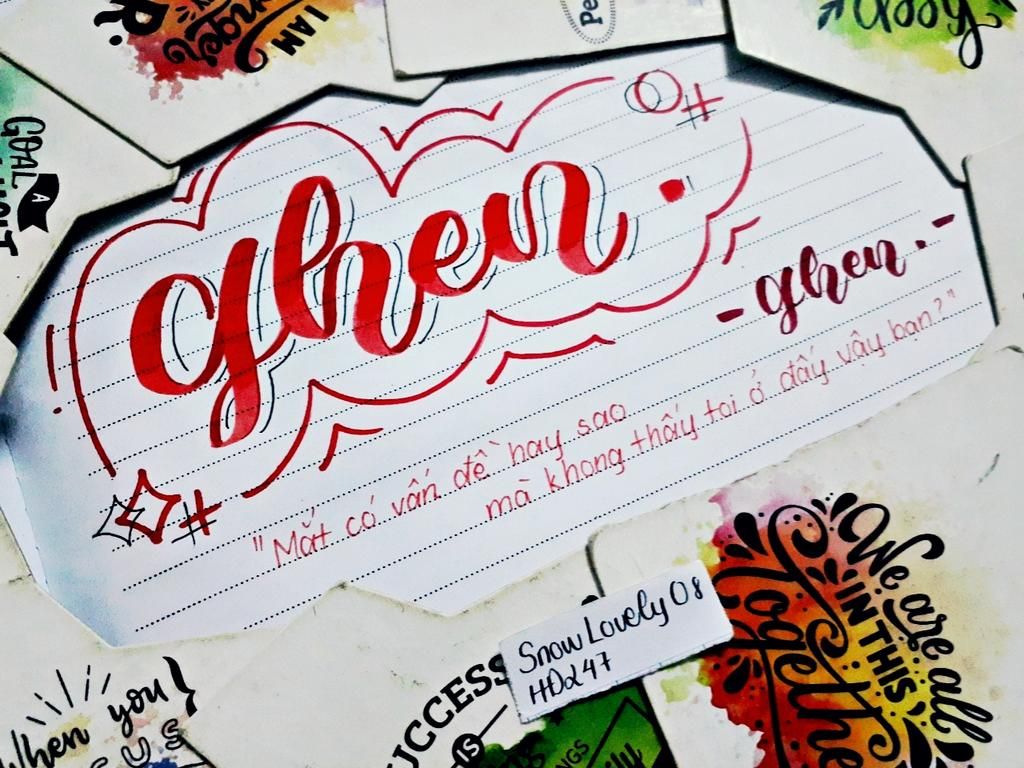 I AM
R.
Pe
GOAL
A
ghen.
- ghen. -
"Mắt có vấn đề hay sao
mà không thấy tôi ở đấy vậy bạn?"
Snow Lovely 08
HD247
We are all
IN THIS
Togethe
UCCESS
IS
When you